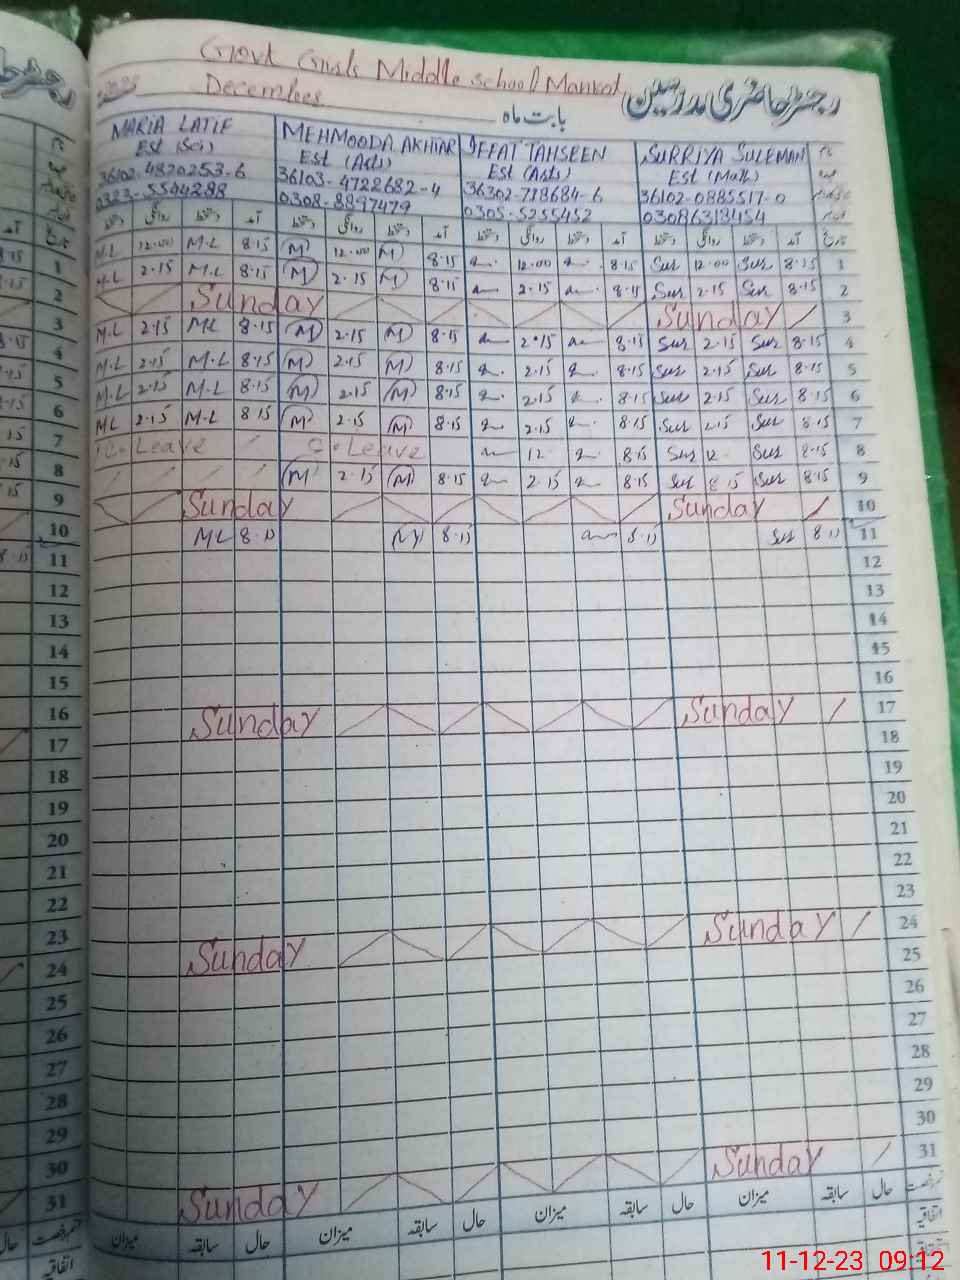 Govt Girls Middle School Mankot
2023 December
رجسٹر حاضری مدرسین
بابت ماہ
MARIA LATIF MEHMOODA AKHTAR IFFAT TAHSEEN SURRIYA SULEMAN نام
Est (Sci) Est (Arts) Est (Arts) Est (Math)
36102-4820253-6 36103-4722682-4 36302-718684-6 36102-0885517-0
0323-5544288 0308-8897479 0305-5255452 03086318454
دستخط روانگی دستخط آمد دستخط روانگی دستخط آمد دستخط روانگی دستخط آمد دستخط روانگی دستخط آمد تاریخ
M.L 12.00 M.L 8.15 (M) 12.00 (M) 8.15 12.00 8.15 Sur 12.00 Sur 8.15 1
M.L 2.15 M.L 8.15 (M) 2.15 (M) 8.15 2.15 8.15 Sur 2.15 Sur 8.15 2
Sunday Sunday 3
M.L 2.15 ML 8.15 (M) 2.15 (M) 8.15 2.15 8.15 Sur 2.15 Sur 8.15 4
M.L 2.15 M.L 8.15 (M) 2.15 (M) 8.15 2.15 8.15 Sur 2.15 Sur 8.15 5
M.L 2.15 M.L 8.15 (M) 2.15 (M) 8.15 2.15 8.15 Sur 2.15 Sur 8.15 6
ML 2.15 M.L 8.15 (M) 2.15 (M) 8.15 2.15 8.15 Sur 2.15 Sur 8.15 7
C.Leave C.Leave 12 8.15 Sur 12 Sur 8.15 8
(M) 2.15 (M) 8.15 2.15 8.15 Sur 8.15 Sur 8.15 9
Sunday Sunday 10
ML 8.15 8.15 8.15 Sur 8.15 11
12
13
14
15
16
Sunday Sunday 17
18
19
20
21
22
23
Sunday Sunday 24
25
26
27
28
29
30
Sunday Sunday 31
میزان سابقہ حال میزان سابقہ حال میزان سابقہ حال میزان سابقہ حال
اتفاقیہ
11-12-23 09:12